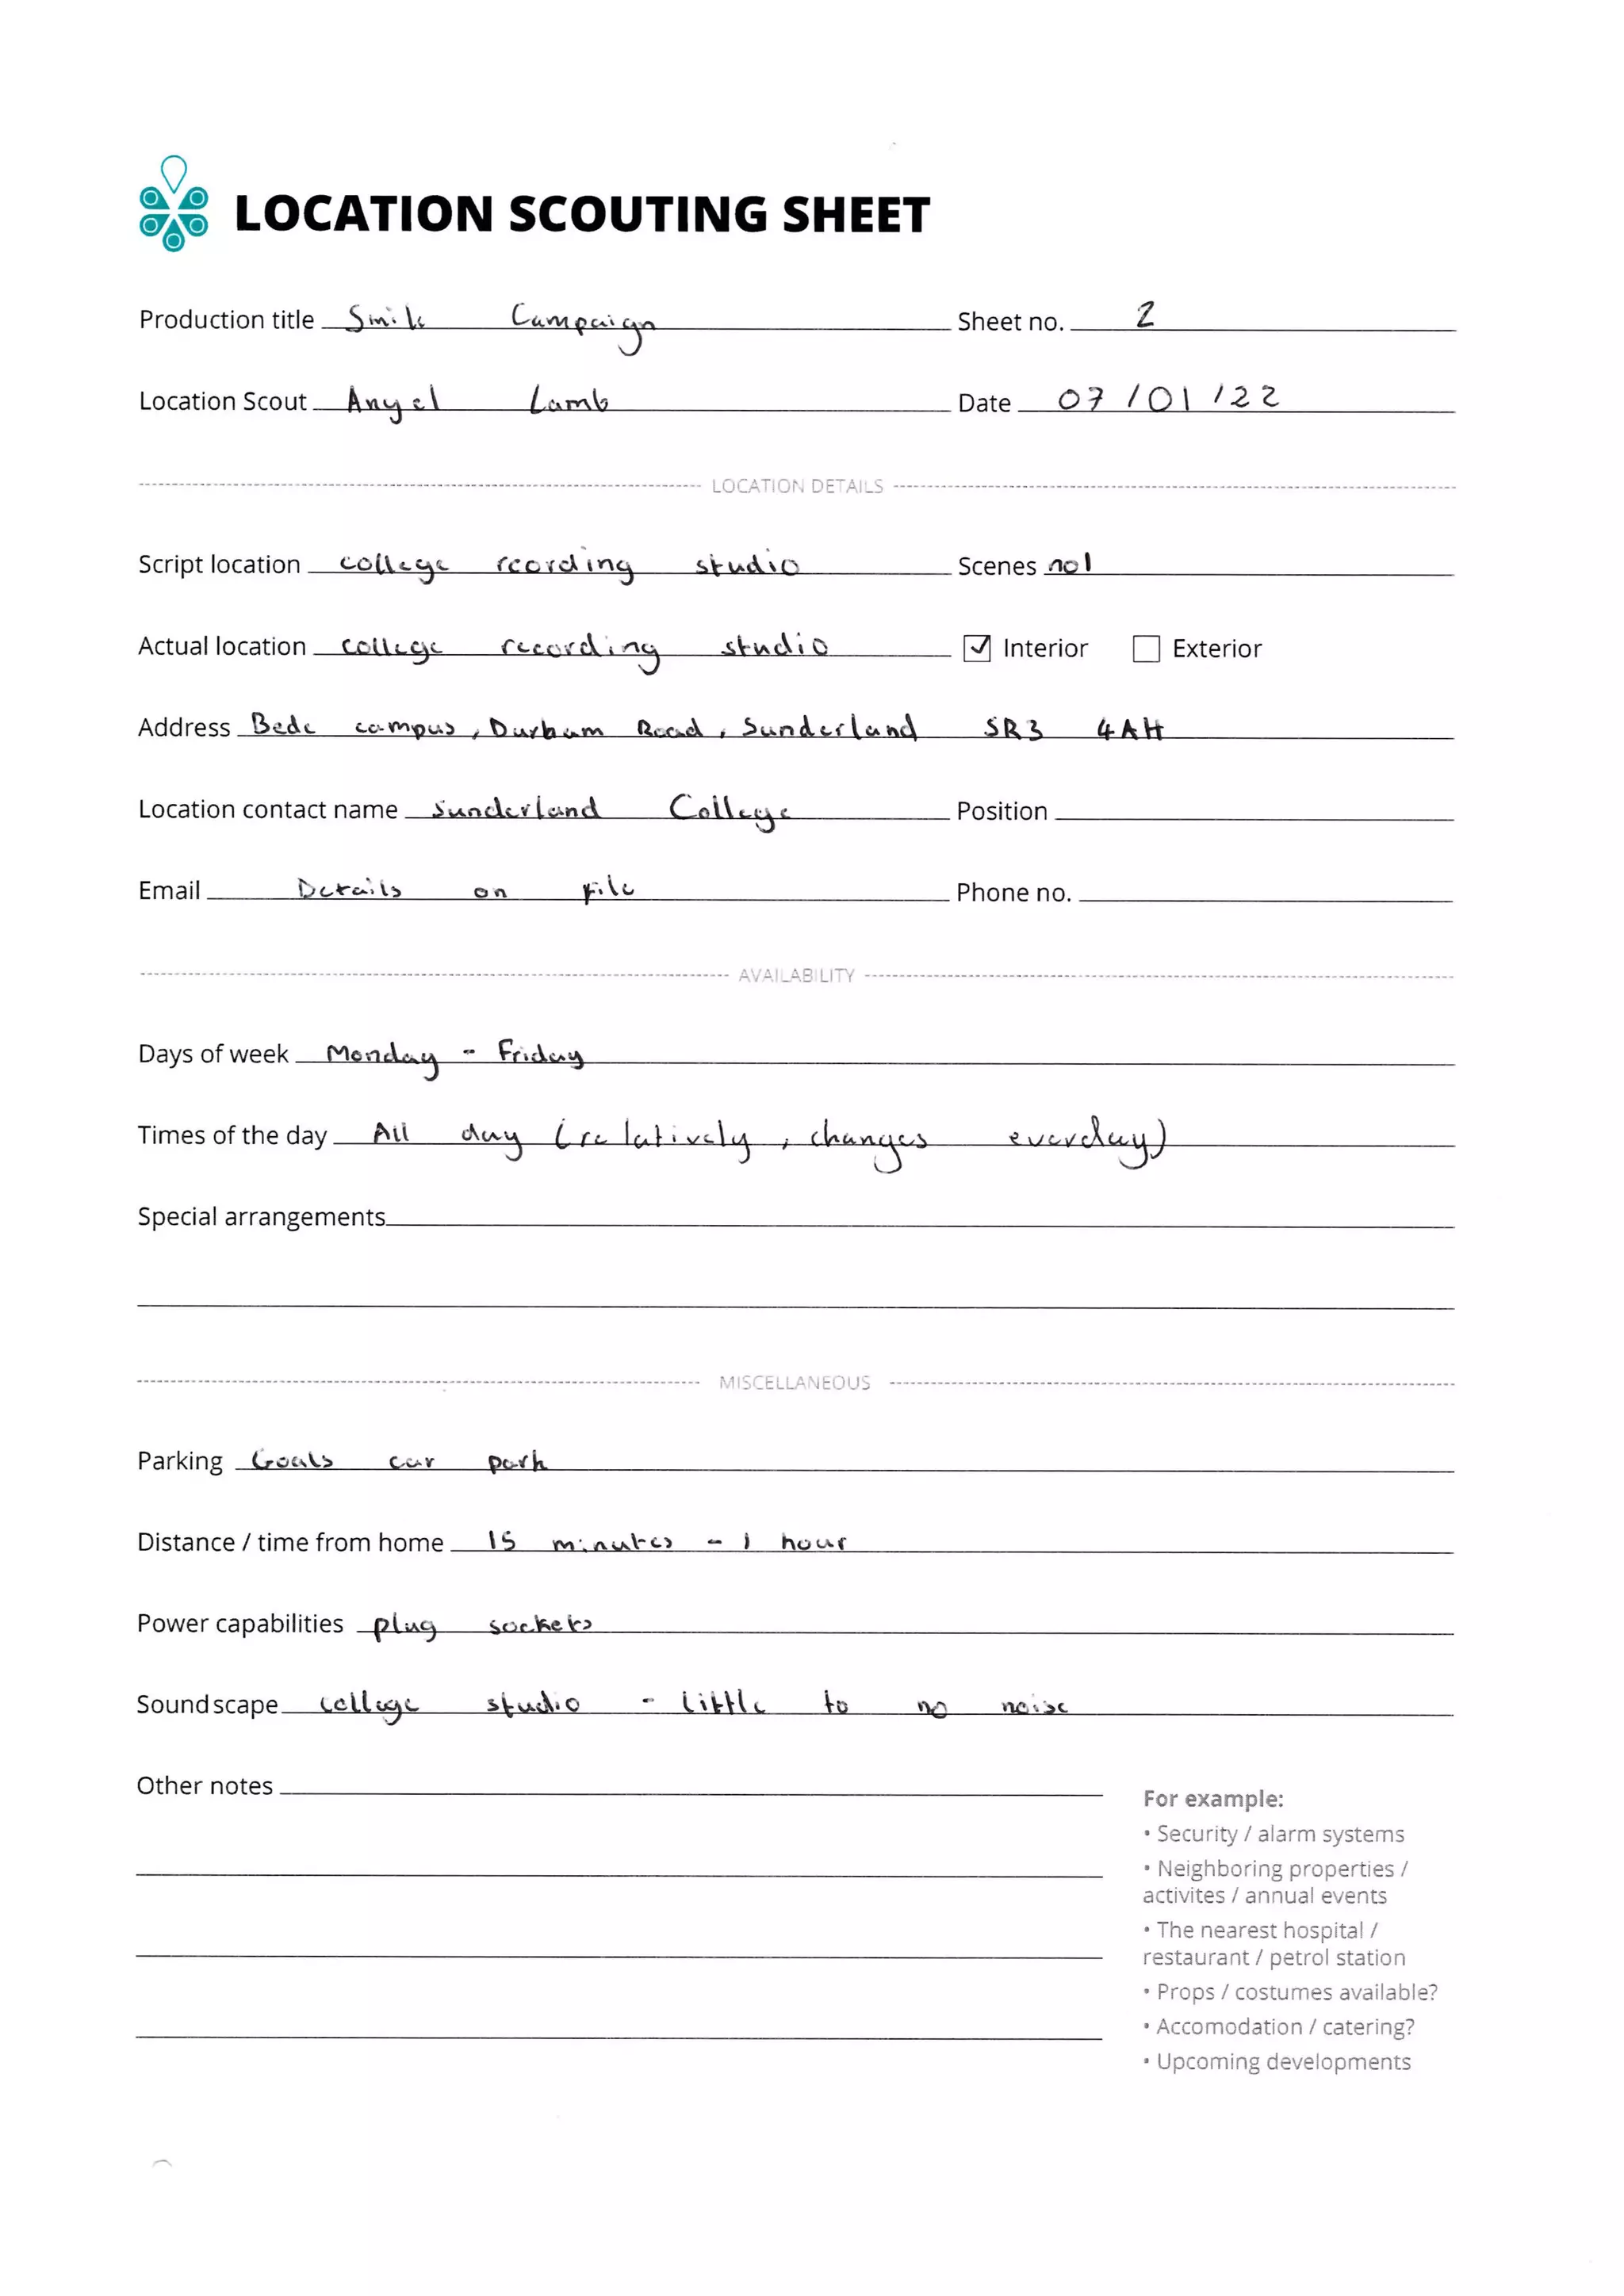 LOCATION SCOUTING SHEET
Production title Smile Campaign Sheet no. 2
Location Scout Angel Lamb Date 07/01/22
LOCATION DETAILS
Script location college rcording studio Scenes no1
Actual location college recording studio Interior Exterior
Address Bede campus, Durham Road, Sunderland SR3 4AH
Location contact name Sunderland College Position
Email Details on file Phone no.
AVAILABILITY
Days of week Monday - Friday
Times of the day All day (relatively, changes everday)
Special arrangements
MISCELLANEOUS
Parking Goals car park
Distance / time from home 15 minutes - 1 hour
Power capabilities plug sockets
Soundscape college studio - little to no noise
Other notes
For example:
• Security / alarm systems
• Neighboring properties /
activites / annual events
• The nearest hospital /
restaurant / petrol station
• Props / costumes available?
• Accomodation / catering?
• Upcoming developments